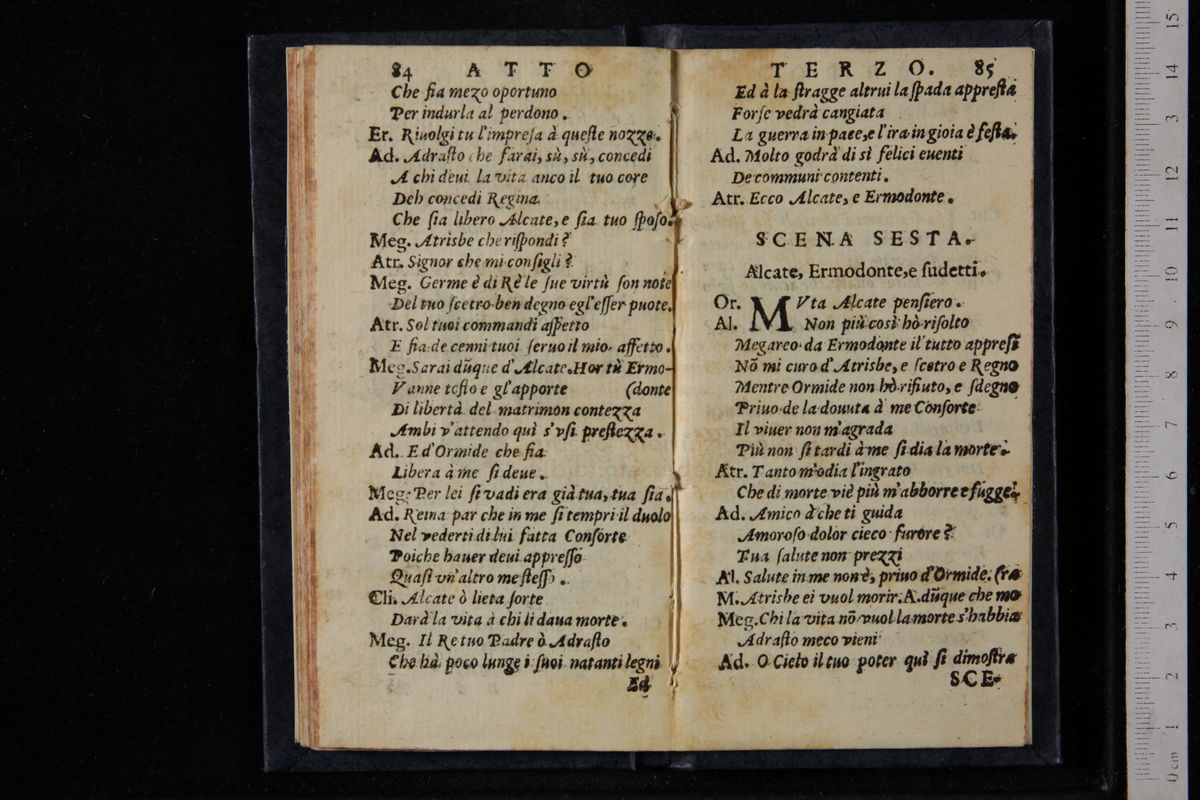 84 ATTO
Che sia mezo oportuno
Per indurla al perdono.
Er. Riuolgi tu l'impresa à queste nozze.
Ad. Adrasto che farai, sù, sù, concedi
A chi deui la vita anco il tuo core
Deh concedi Regina
Che sia libero Alcate, e sia tuo sposo.
Meg. Atrisbe che rispondi?
Atr. Signor che mi consigli?
Meg. Germe è di Rè le sue virtù son note
Del tuo scetro ben degno egl'esser puote.
Atr. Sol tuoi commandi aspetto
E sia de cenni tuoi seruo il mio affetto.
Meg. Sarai dũque d'Alcate. Hor tù Ermo-
Vanne tosto e gl'apporte (donte
Di libertà del matrimon contezza
Ambi v'attendo quì s'vsi prestezza.
Ad. E d'Ormide che sia
Libera à me si deue.
Meg. Per lei si vadi era già tua, tua sia.
Ad. Reina par che in me si tempri il duolo
Nel vederti di lui fatta Consorte
Poiche hauer deui appresso
Quasi vn'altro me stesso.
Cli. Alcate ò lieta sorte
Darà la vita à chi li daua morte.
Meg. Il Re tuo Padre ò Adrasto
Che hà poco lunge i suoi natanti legni
Ed
TERZO. 85
Ed à la stragge altrui la spada appresta
Forse vedrà cangiata
La guerra in pace, e l'ira in gioia è festa.
Ad. Molto godrà di sì felici euenti
De communi contenti.
Atr. Ecco Alcate, e Ermodonte.
SCENA SESTA.
Alcate, Ermodonte, e sudetti.
Or. MVta Alcate pensiero.
Al. Non più così hò risolto
Megareo da Ermodonte il tutto appresi
Nõ mi curo d'Atrisbe, e scetro e Regno
Mentre Ormide non hò rifiuto, e sdegno
Priuo de la douuta à me Consorte
Il viuer non m'agrada
Più non si tardi à me si dia la morte.
Atr. Tanto m'odia l'ingrato
Che di morte viè più m'abborre e fugge.
Ad. Amico à che ti guida
Amoroso dolor cieco furore?
Tua salute non prezzi
Al. Salute in me non è, priuo d'Ormide. (ra
M. Atrisbe ei vuol morir. A. dũque che mo-
Meg. Chi la vita nõ vuol la morte s'habbia
Adrasto meco vieni
Ad. O Cielo il tuo poter quì si dimostra
SCE-
0 cm 1 2 3 4 5 6 7 8 9 10 11 12 3 14 15